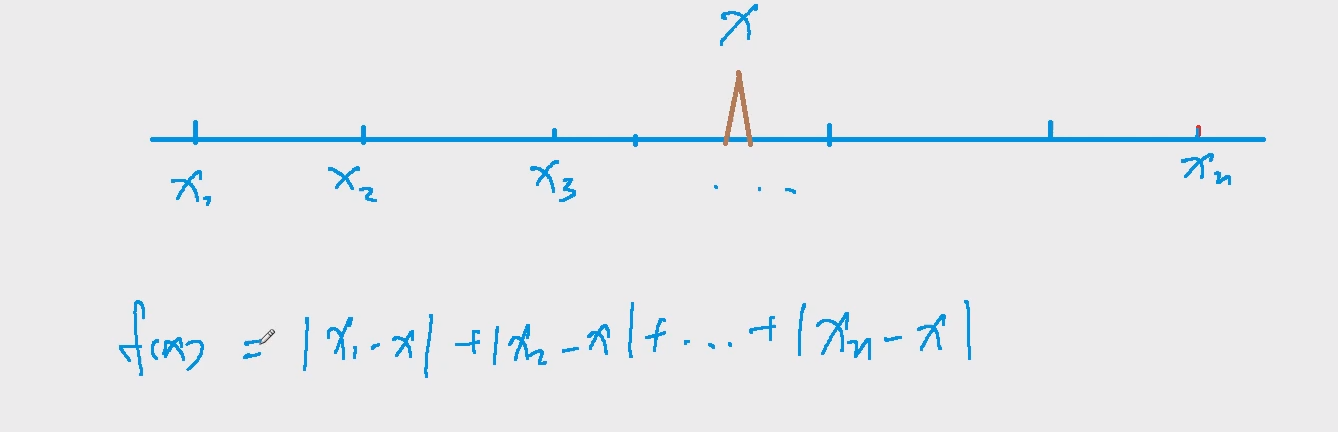 x
x₁ x₂ x₃ ... xₙ
f(x) = |x₁ - x| + |x₂ - x| + ... + |xₙ - x|